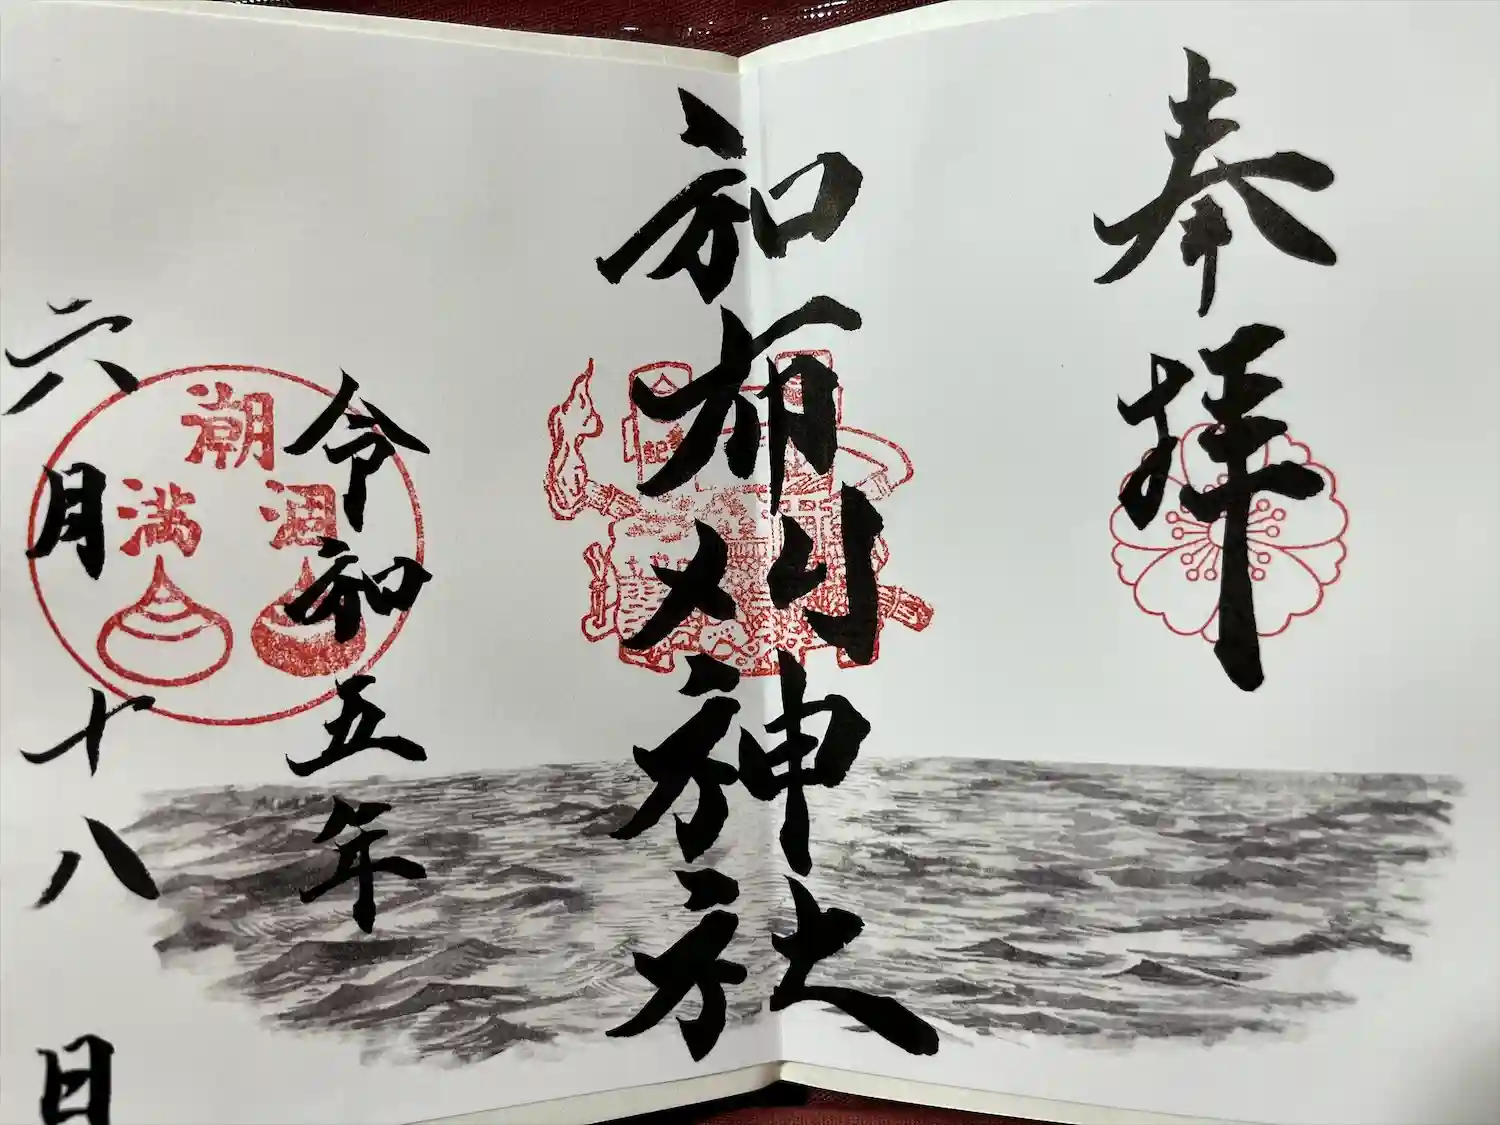 奉拝
和布刈神社
令和五年
六月十八日
潮
涸
満